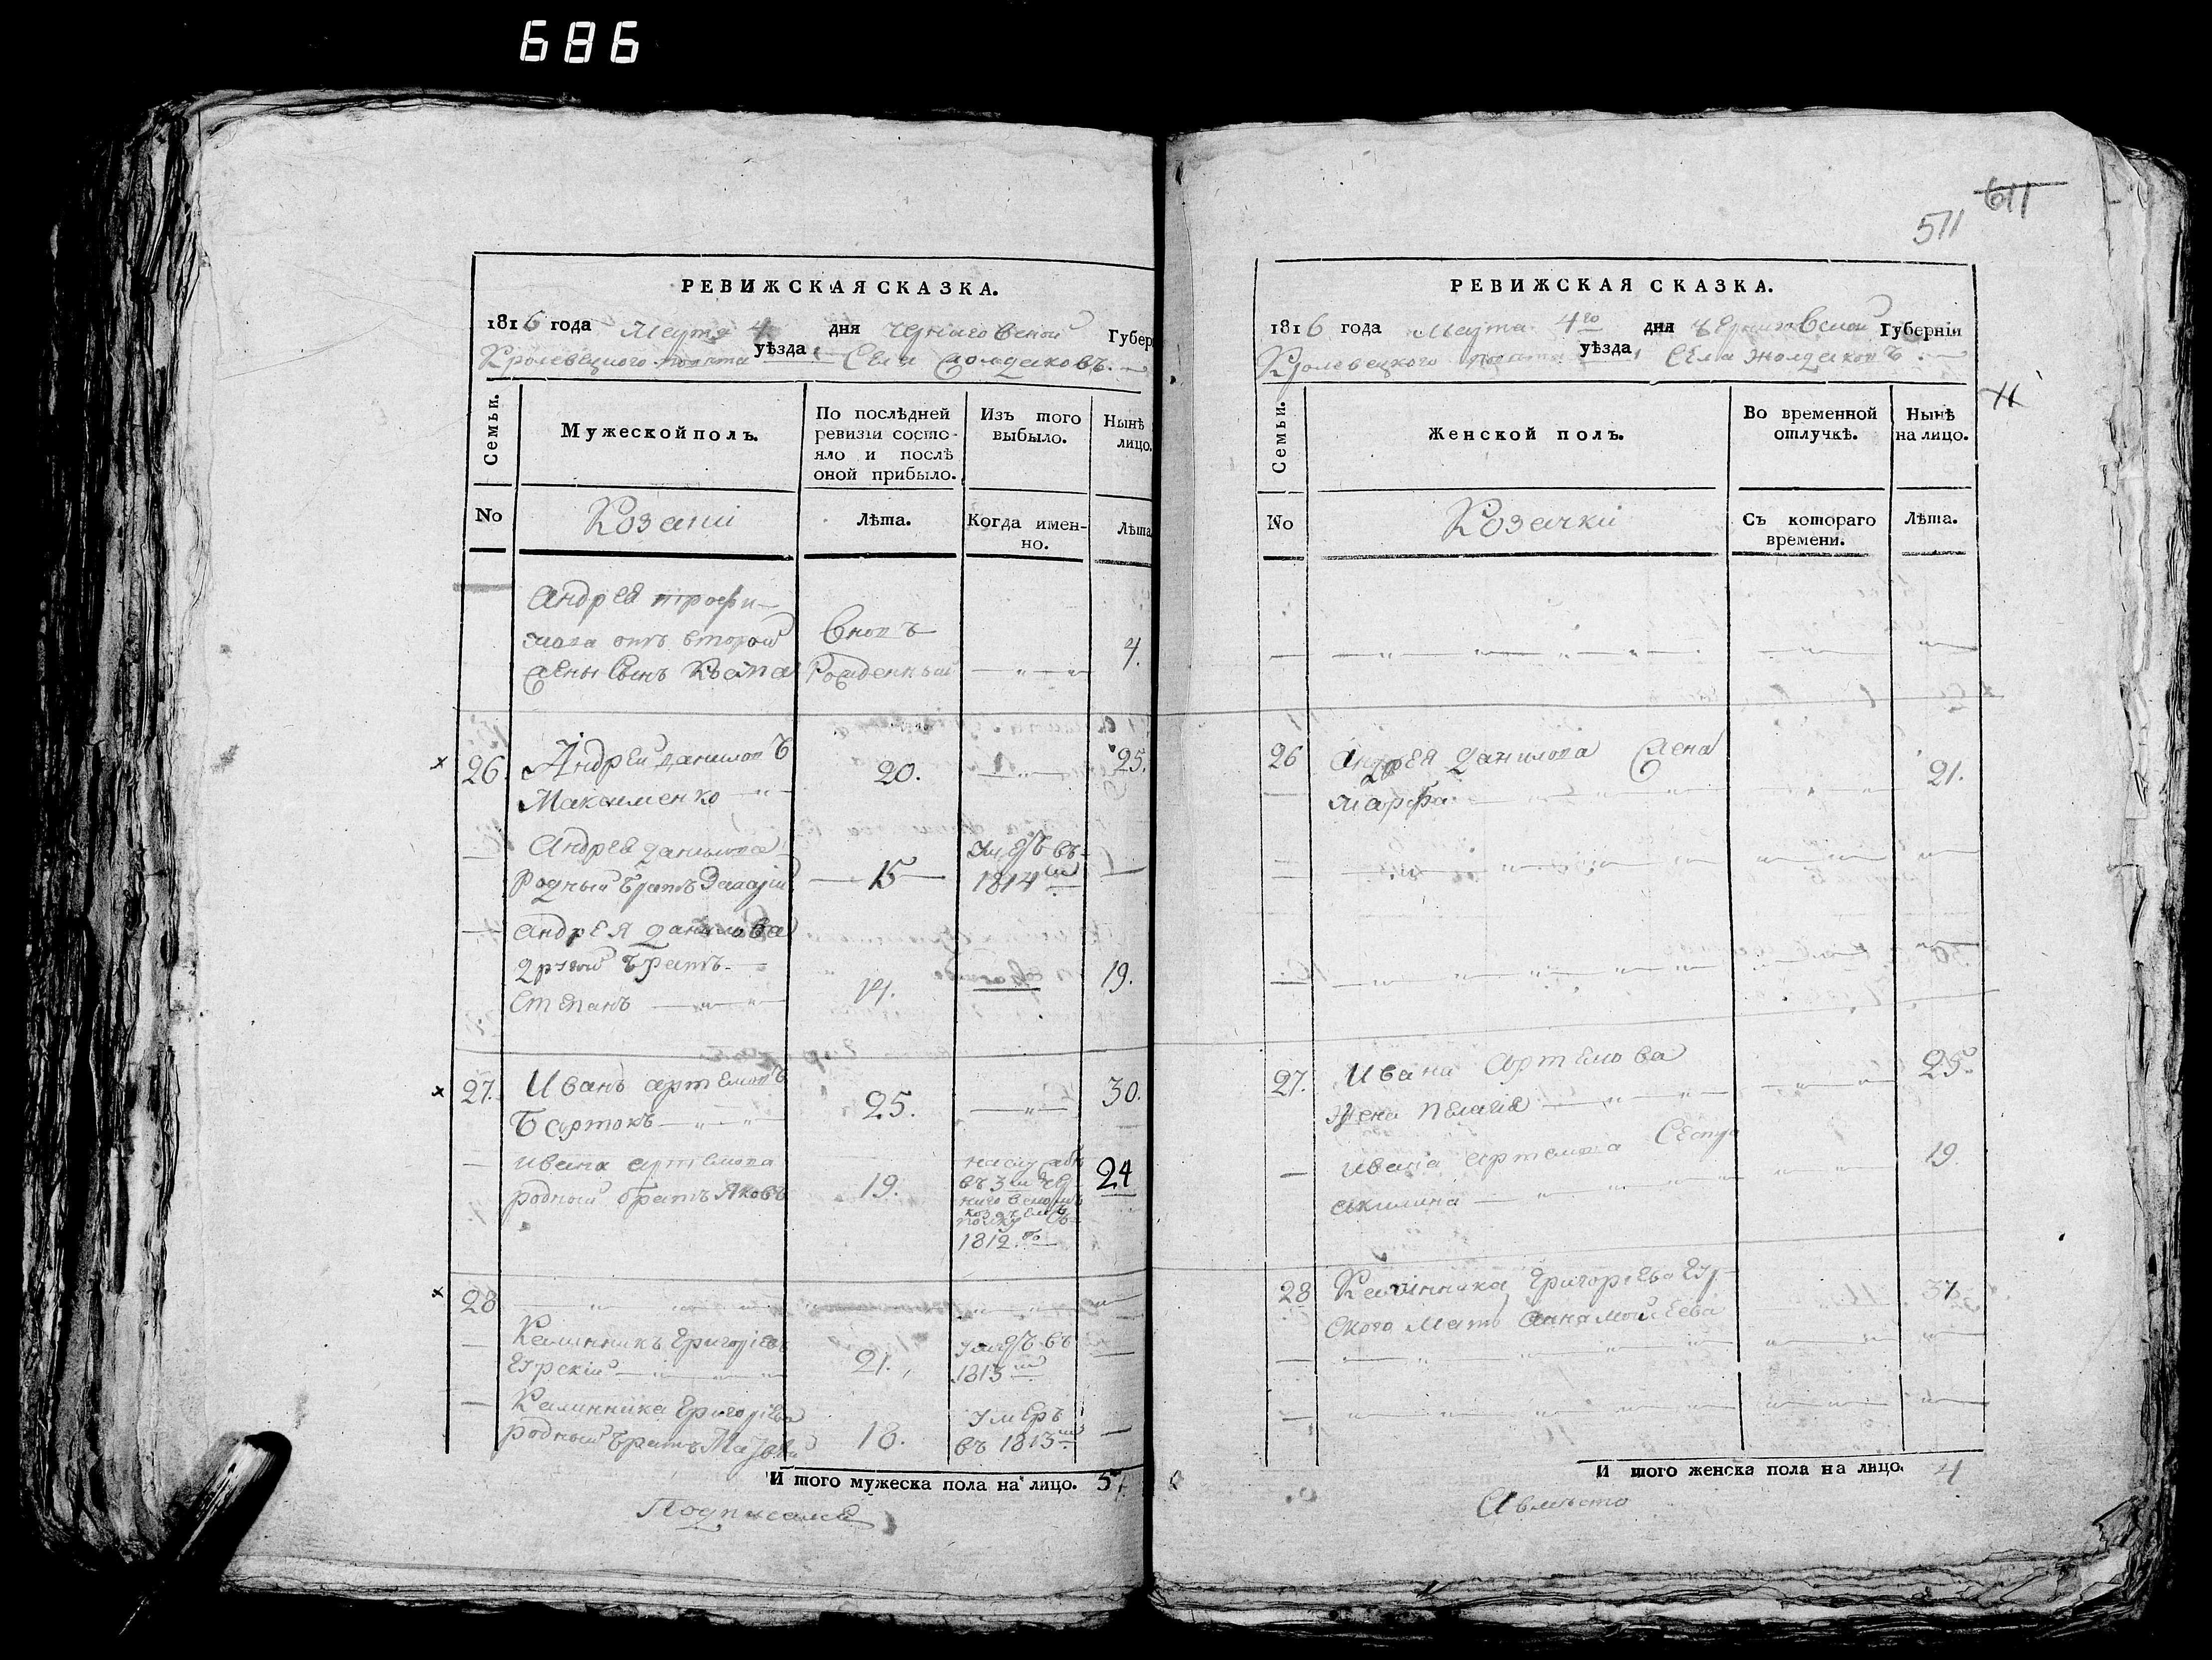 686
611
511
РЕВИЖСКАЯ СКАЗКА.
1816 года Марта 4 дня Черниговской Губер
Кролевецкого повѣта уѣзда, Села Жолдаковъ.
Семьи.
Мужеской полъ.
По послѣдней
ревизіи состо-
яло и послѣ
оной прибыло.
Изъ того
выбыло.
Нынѣ
лицо.
No
Козаки
Лѣта.
Когда имен-
но.
Лѣта
Андрея Трофи-
мова отъ второй
жены сынъ
Вновъ
Рожденный
4.
26. Андрей Даниловъ
Максименко
20.
25.
Андрея Данилова
Родный братъ
15
Умеръ въ
1814
Андрея Данилова
Другой братъ
Степанъ
14.
19.
27. Иванъ Артемовъ
Бартокъ
25.
30.
Ивана Артемова
родный братъ Яковъ
19.
на службѣ
въ 3м Чер-
ниговскомъ
козачемъ
полку съ
1812.го
24
28
Калинникъ Григоріевъ
21.
Умеръ въ
1813
Калинника Григоріева
родный братъ
18.
Умеръ
въ 1813
И того мужеска пола на лицо. 5
Подписался
РЕВИЖСКАЯ СКАЗКА.
1816 года Марта 4го дня Черниговской Губерніи
Кролевецкого повѣта уѣзда, Села Жолдаковъ.
Семьи.
Женской полъ.
Во временной
отлучкѣ.
Нынѣ
на лицо.
No
Козачки
Съ котораго
времени.
Лѣта.
26 Андрея Данилова Жена
Марфа
21.
27. Ивана Артемова
Жена Пелагія
25.
Ивана Артемова Сестра
Акилина
19.
28 Калинника Григоріева
ского Мать Анна Моисеева
37.
И того женска пола на лицо. 4
А вмѣсто